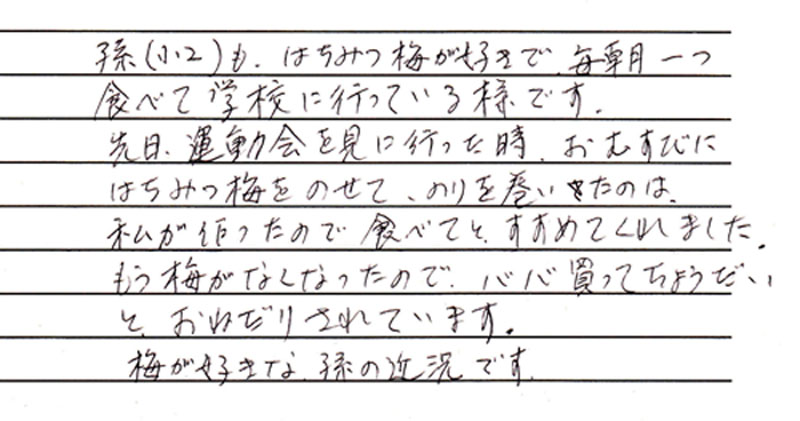 孫(小2)も、はちみつ梅が好きで、毎朝一つ
食べて学校に行っている様です。
先日、運動会を見に行った時、おむすびに
はちみつ梅をのせて、のりを巻いたのは、
私が作ったので食べてと、すすめてくれました。
もう梅がなくなったので、ババ買ってちょうだい
と、おねだりされています。
梅が好きな、孫の近況です。